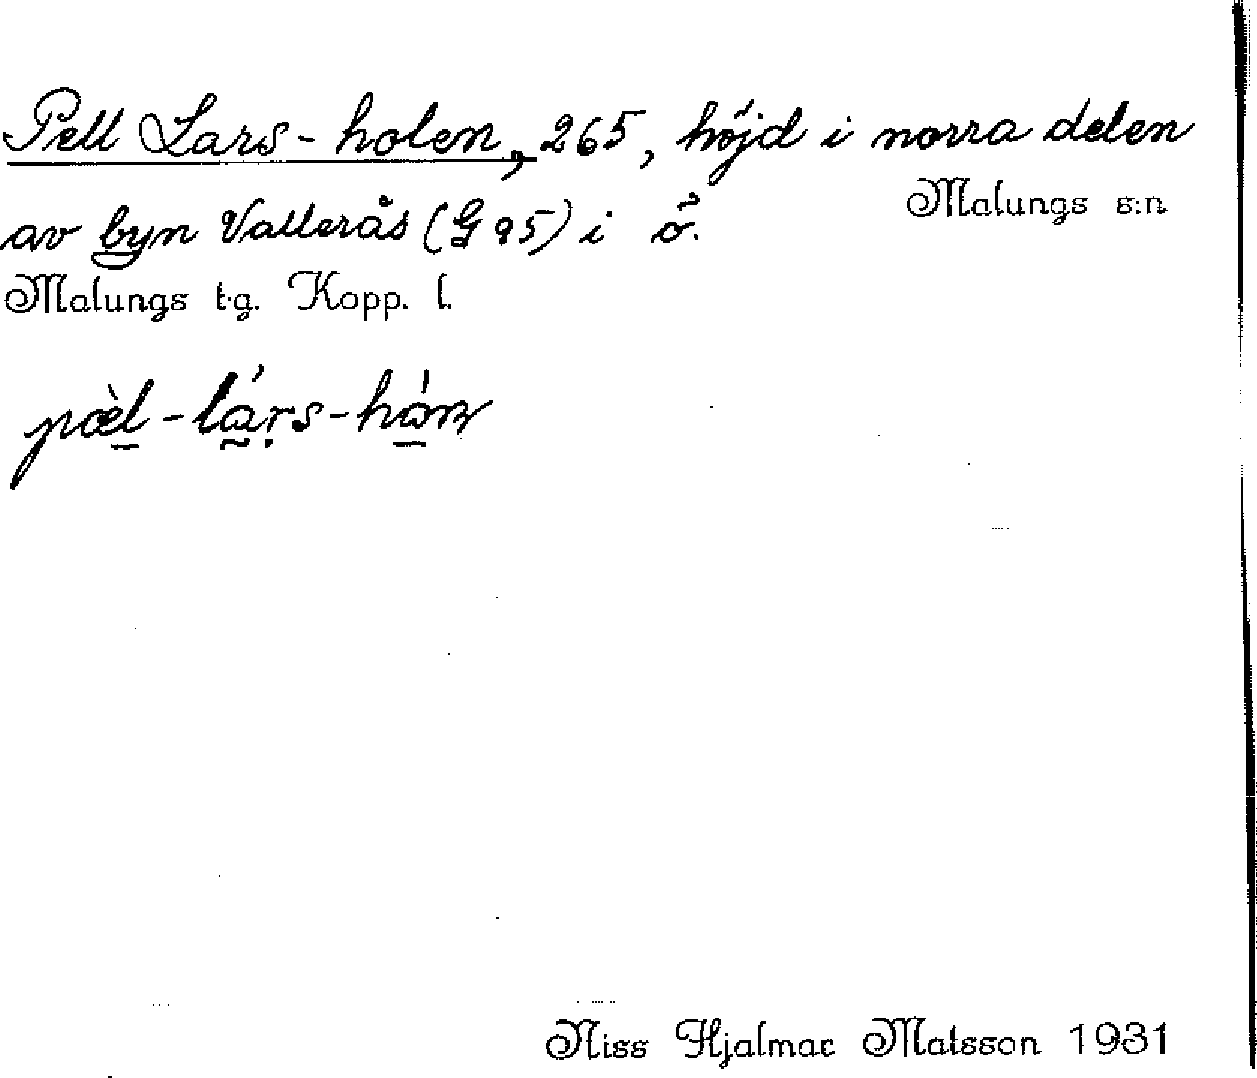 Pell Lars-holen, 265, höjd i norra delen
av byn Vallerås (G 95) i ö.
Malungs s:n
Malungs t.g. Kopp. l.
pæ̀l-lárs-hán
Niss Hjalmar Matsson 1931